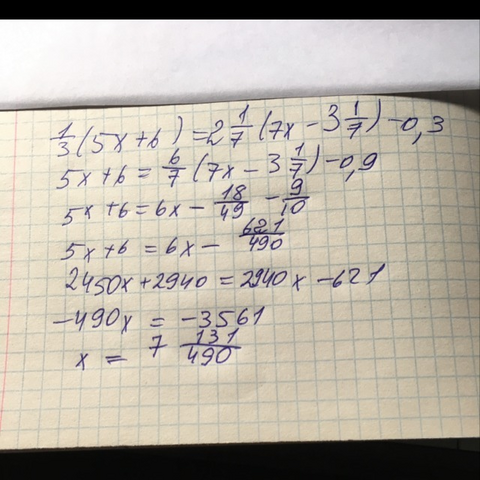 1/3 (5x + 6) = 2 1/7 (7x - 3 1/7) - 0,3
5x + 6 = 6/7 (7x - 3 1/7) - 0,9
5x + 6 = 6x - 18/49 - 9/10
5x + 6 = 6x - 621/490
2450x + 2940 = 2940x - 621
-490x = -3561
x = 7 131/490